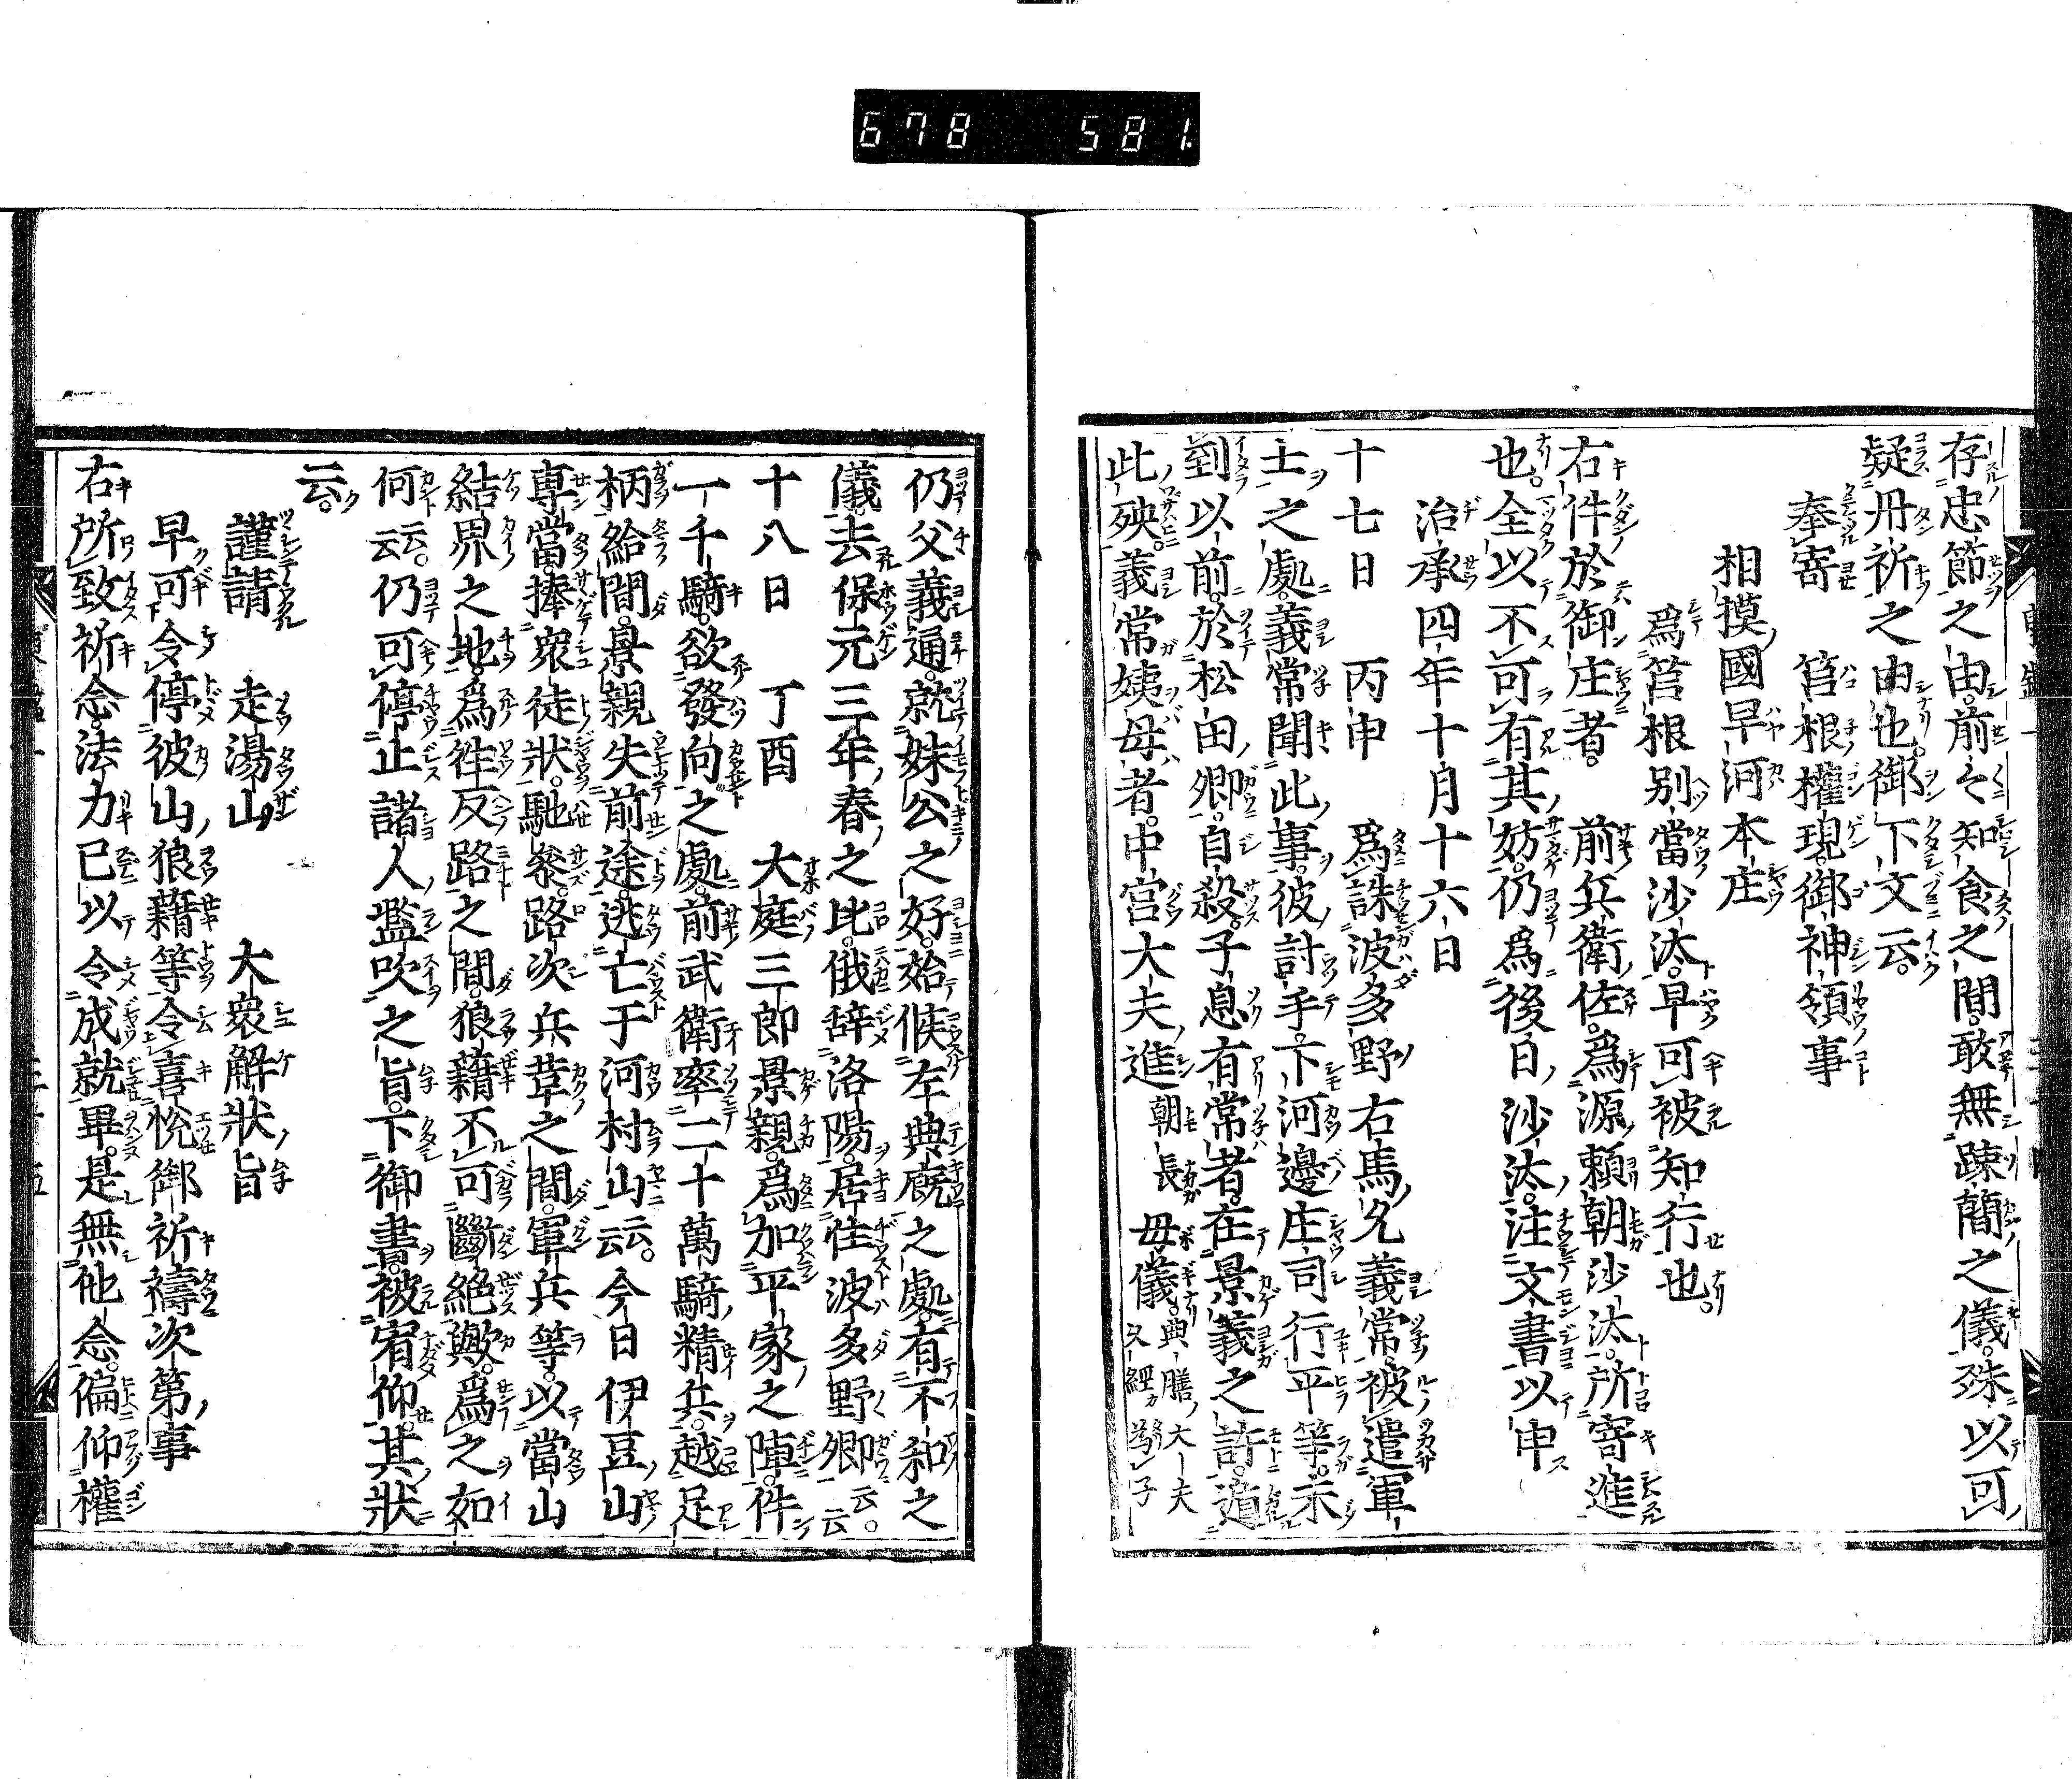 678 581.
存忠節之由。前々知食之間。敢無疎簡之儀。殊以可
疑丹祈之由也。御下文云。
奉寄 筥根權現。御神領事
相摸國早河本庄
爲筥根別當沙汰。早可被知行也。
右件於御庄者。 前兵衛佐。爲源頼朝沙汰。所寄進
也。全以不可有其妨。仍爲後日沙汰。注文書以申
治承四年十月十六日
十七日 丙申 爲誅波多野右馬允義常。被遣軍
士之處。義常聞此事。彼討手。下河邊庄司行平等。未
到以前。於松田卿。自殺。子息有常者。在景義之許。遁
此殃。義常姨母者。中宮大夫進朝長母儀。典膳大夫久經爲子
仍父義通。就妹公之好。始候左典廐之處。有不和之
儀。去保元三年春之比。俄辞洛陽。居住波多野郷云云。
十八日 丁酉 大庭三郎景親。爲加平家之陣。件
一千騎。欲發向之處。前武衛率二十萬騎精兵。越足
柄給間。景親失前途。逃亡于河村山云云。今日伊豆山
専當。捧衆徒狀。馳參。路次兵革之間。軍兵等。以當山
結界之地。爲徃反路之間。狼藉不可斷絶歟。爲之如
何云云。仍可停止諸人濫吹之旨。下御書。被宥仰。其狀
云。
謹請 走湯山 大衆解狀旨
早可令停彼山狼藉等令喜悅御祈禱次第事
右所致祈念。法力已以令成就畢。是無他念。偏仰權